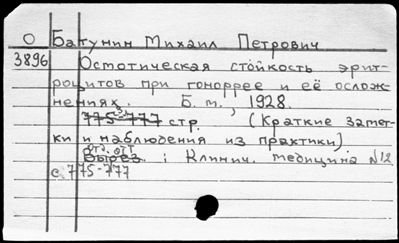 О Батунин Михаил Петрович
3896 Осмотическая стойкость эрит-
роцитов при гоноррее и её ослож-
нениях. Б. м., 1928.
775-777 3 стр. (Краткие замет-
ки и наблюдения из практики)
отд. отт.
Вырез. : Клинич. медицина №12
с. 775-777